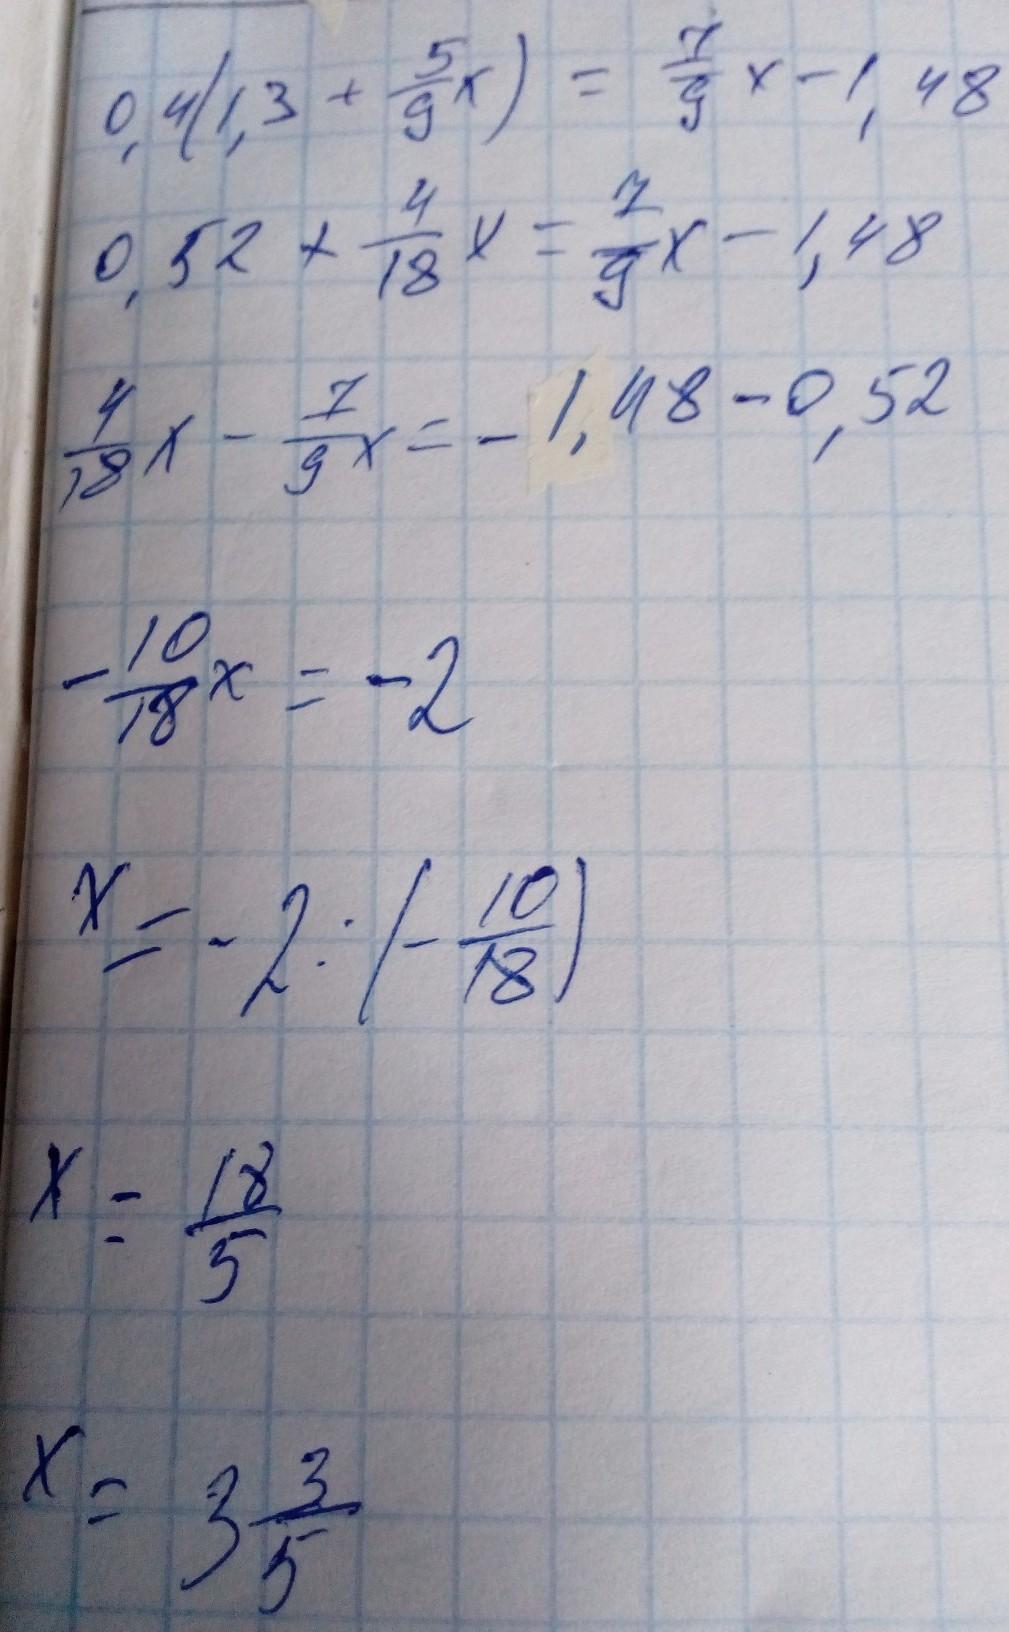 0,4(1,3 + 5/9 x) = 7/9 x - 1,48
0,52 + 4/18 x = 7/9 x - 1,48
4/18 x - 7/9 x = - 1,48 - 0,52
- 10/18 x = - 2
x = - 2 : (- 10/18)
x = 18/5
x = 3 3/5